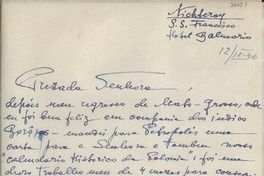 Nichteroy
S. S. Francisco
Hotel Balneario
12/IX-46
Prezada Senhora,
depois meu regresso de Mato-Grosso, onde
eu foi bem feliz em companhia dos indios
- mandei para Petropolis uma
carta para a Senhora e tambem nosso
calendario Historico da Polonia; foi um
duro trabalho meu da 4 mezes para